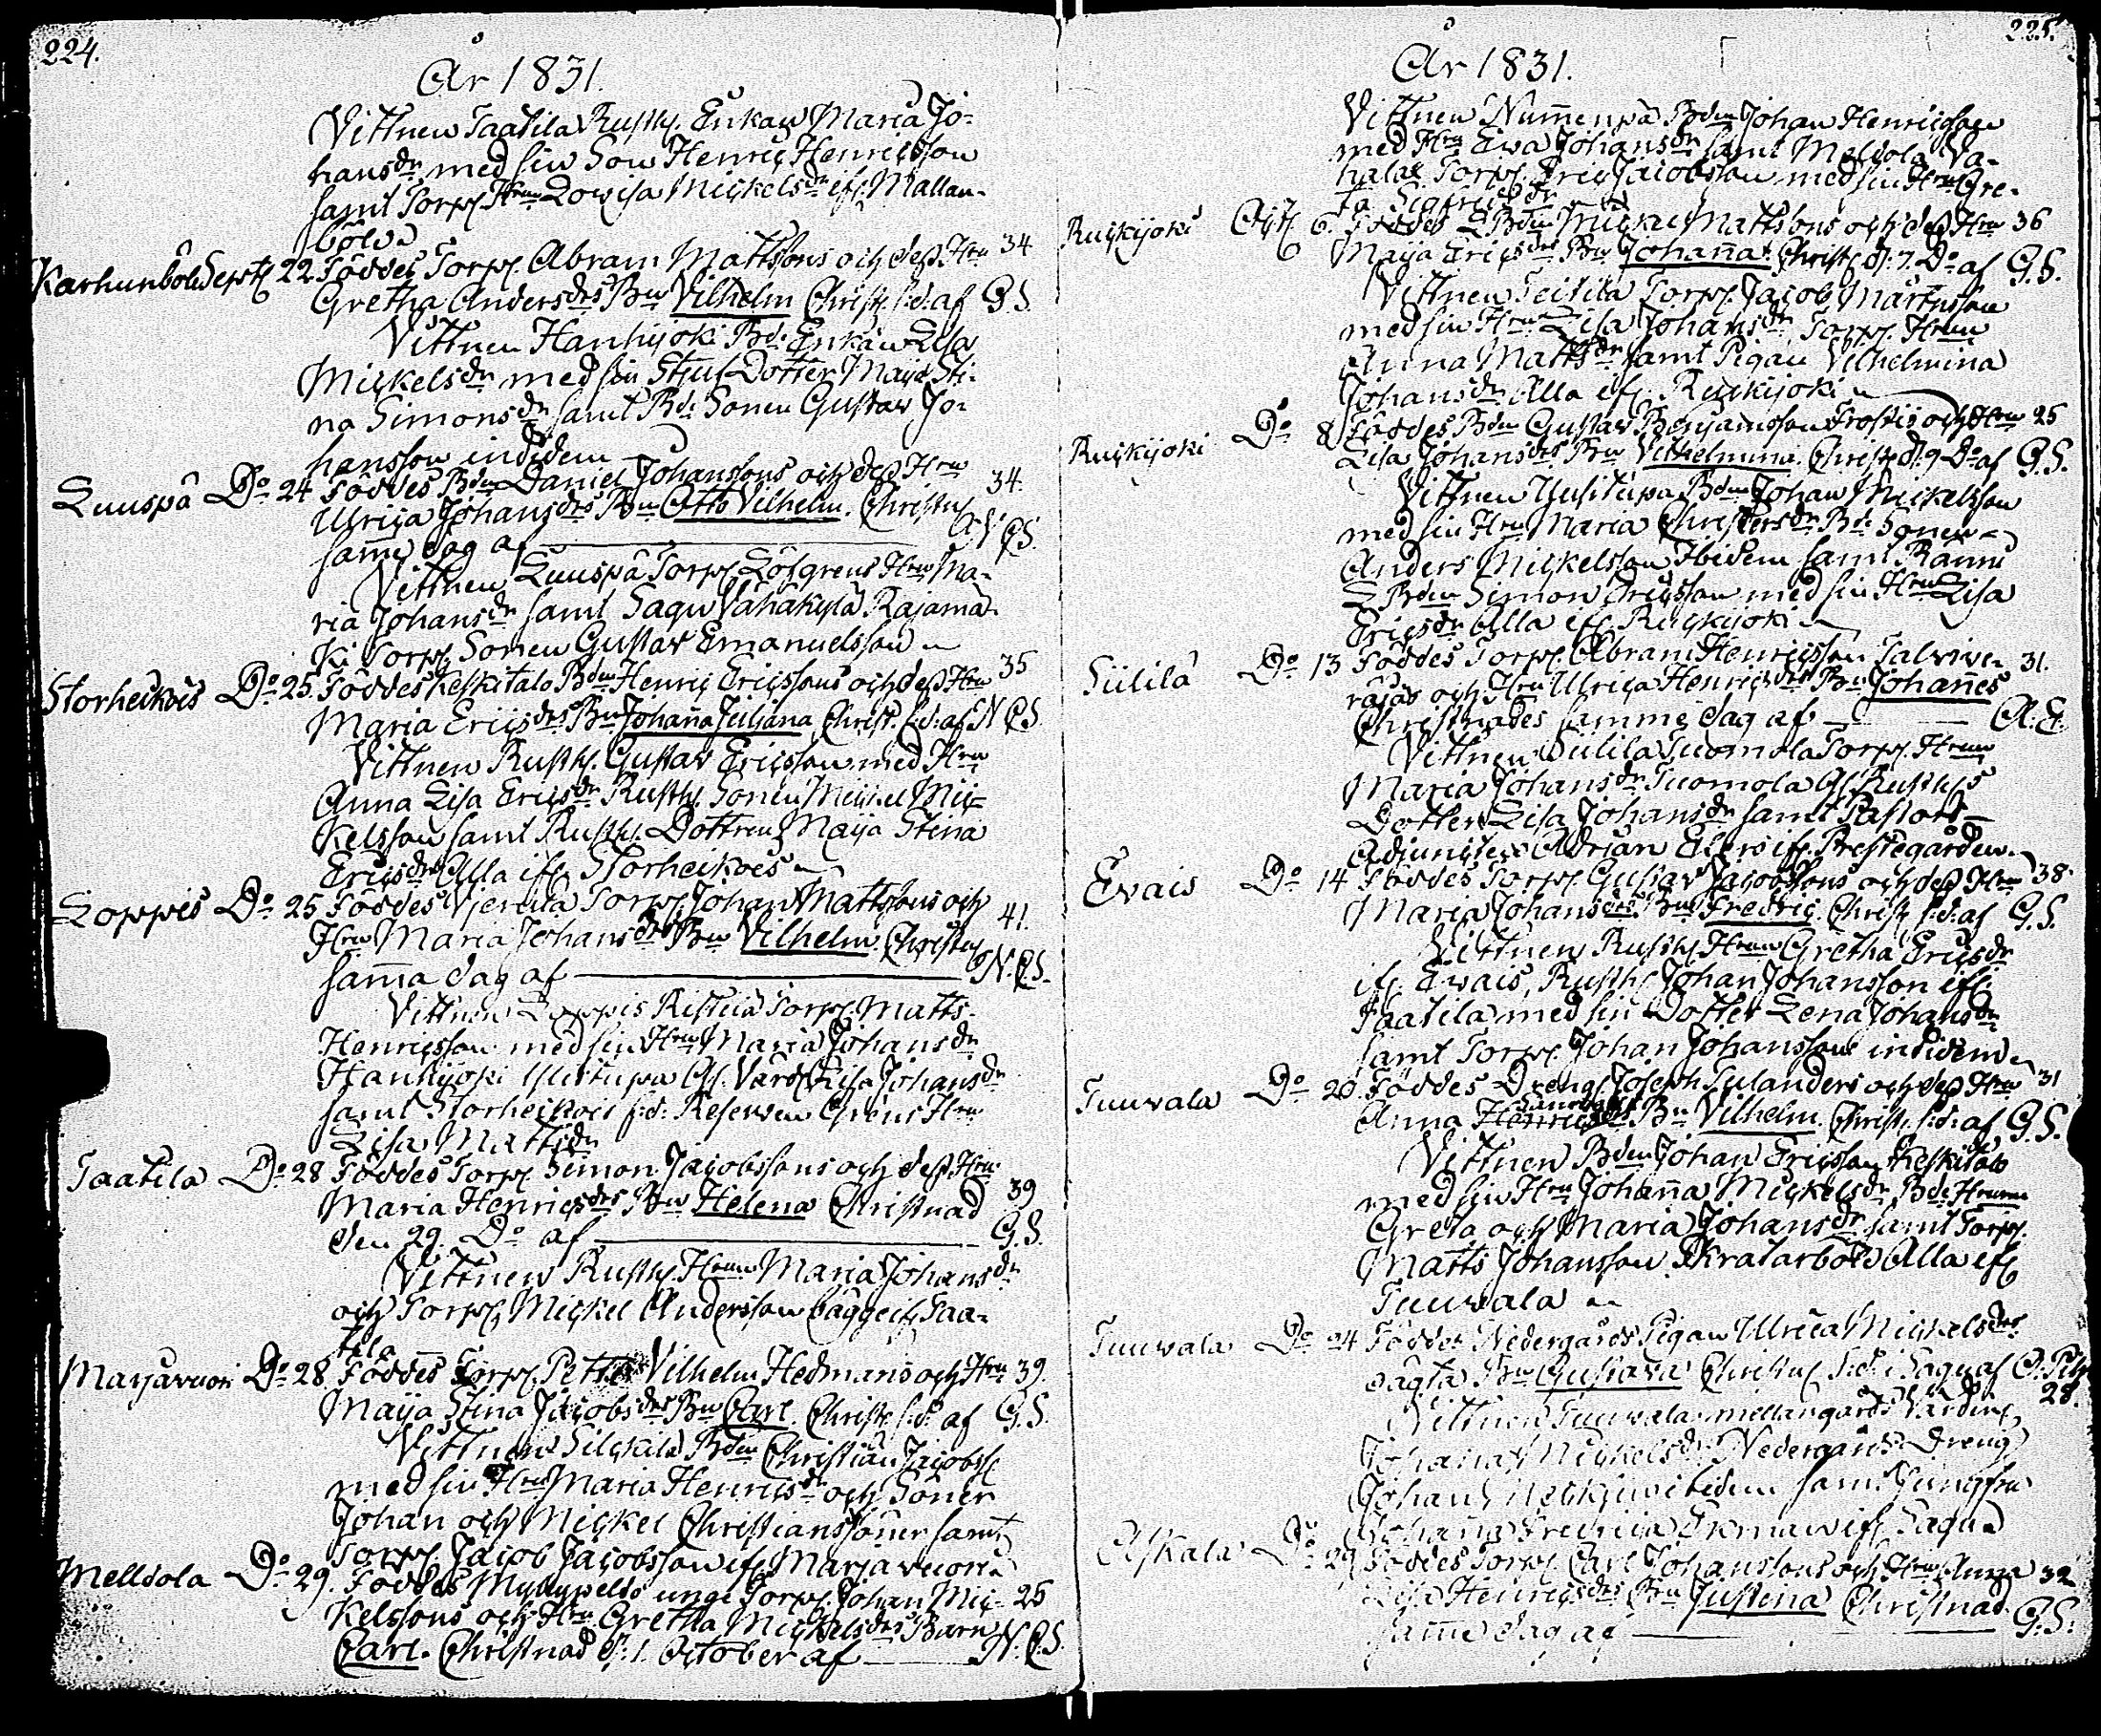 224.
År 1831.
Vittnen Taatila Rusth. Enkan Maria Jo-
hansdr med sin Son Henric Henricsson
samt Torp. Hru Lovisa Mickelsdr if. Mallan-
böle
Karhunböle Sept. 22 Föddes Torp. Abram Mattssons och dess Hru 34
Gretha Andersdrs Bn Vilhelm Christ. s:d: af G.S.
Vittnen Hanhijoki Bd: Enkan Lisa
Mickelsdr med sin Stiuf Dotter Maja Sti-
na Simonsdr samt Bd: Sonen Gustav Jo-
hansson indidem
Luuspä Do 24 Föddes Bdn Daniel Johanssons och dess Hru 34.
Ulrica Johansdrs Bn Otto Vilhelm. Christn.
samme dag af N.C.S.
Vittnen Luuspä Torp. Löfgrens Hru Ma-
ria Johansdr samt Sagu Vähäkylä Rajamä-
ki Torp. Sonen Gustav Emanuelsson
Storheikois Do 25 Föddes Keskitalo Bdn Henric Ericssons och dess Hru 35
Maria Ericsdrs Bn Johanna Juliana Christ. s:d: af N.C.S.
Vittnen Rusth. Gustav Ericsson med Hru
Anna Lisa Ericsdr Rusth. Sonen Mickel Mic-
kelsson samt Rusth. Dottren Maja Stina
Ericsdr Alla if. Storheikois
Loppis Do 25 Föddes Torp. Johan Mattssons och 41.
Hru Maria Johansdrs Bn Vilhelm Christn.
samma dag af N.C.S.
Vittnen Loppis Torp. Matts
Henricsson med sin Hru Maria Johansdr
Hanhijoki Lisa Johansdr
samt Storheikois Hru
Lisa Mattsdr
Taatila Do 28 Föddes Torp. Simon Jacobssons och dess Hru
Maria Henricsdrs Bn Helena Christnad 39
den 29. Do af G.S.
Vittnen Rusth. Hrun Maria Johansdr
och Torp. Mickel Andersson bägge if. Taa-
tila
Marjavuori Do 28 Föddes Torp. Petter Vilhelm Hedmans och Hru 39.
Maja Stina Jacobsdrs Bn Carl. Christ. s:d: af G.S.
Vittnen Silckilä Bdn Christian Jacobss.
med sin Hru Maria Henricsdr och Söner
Johan och Mickel Christianssöner samt
Torp. Jacob Jacobsson if. Marjavuori
Mellsola Do 29. Föddes unge Torp. Johan Mic- 25
kelssons och Hru Gretha Mickelsdrs Barn
Carl. Christnad d: 1. October af N.C.S.
225.
År 1831.
Vittnen Nummenpä Bdn Johan Henricsson
med Hru Ewa Johansdr samt Mellola Va-
Torp. Eric Jacobsson med sin Hru Gre-
ta Sigfridsdr
Ruickijoki Oct. 6. Föddes Bdn Mickel Mattssons och dess Hru 36
Maija Ericsdrs Bn Johanna. Christ. d: 7. Do af G.S.
Vittnen Seitilä Torp. Jacob Mårtensson
med sin Hru Lisa Johansdr Torp. Hrun
Anna Mattsdr samt Pigan Vilhelmina
Johansdr Alla if. Ruickijoki
Ruickijoki Do 8 Föddes Bdn Gustav Benjamsson och Hru 25
Lisa Johansdrs Bn Vilhelmina. Christ. d: 9 Do af G.S.
Vittnen Yusitupa Bdn Johan Mickelsson
med sin Hru Maria Christersdr Bd: Sonen
Anders Mickelsson Ibidem samt Rännä
Bdn Simon Ericsson med sin Hru Lisa
Ericsdr Alla if. Ruickijoki
Siililä Do 13 Föddes Torp. Abram Henricsson 31.
och Hru Ulrica Henricsdrs Bn Johannes
Christnades samme dag af A.E.
Vittnen Tuomola Torp. Hrun
Maria Johansdr Tuomola Rusth.
Dotter Lisa Johansdr samt Pastors
Adjuncten Adrian Elers if. Prestegården
Evais Do 14 Föddes Torp. Gustav Jacobssons och dess Hru 38
Maria Johansdrs Bn Fredric. Christ. s:d: af G.S.
Vittnen Rusth. Hrun Gretha Ericsdr
if. Evais, Rusth. Johan Johansson if.
Taatila med sin Dotter Lena Johansdr
samt Torp. Johan Johansson indidem
Tuuvala Do 20. Föddes Drengs Joseph Sulanders och dess Hru 31
Anna Bn Vilhelm. Christ. s:d: af G.S.
Vittnen Bdn Johan Ericsson Keskitalo
med sin Hru Johanna Mickelsdr Bde Hrurna
Greta och Maria Johansdr samt Torp.
Matts Johansson Skratarböle Alla if.
Tuuvala
Tuuvala Do 24 Föddes Nedergårds Pigan Ulrica Mickelsdrs
oägta Bn Gustava Christn. s:d: i Sagu af
28.
Vittnen Tuuvala mellangårds
Johanna Mickelsdr Nedergårds Dreng
Johan ibidem samt Jungfru
Johanna Fredrica if. Sagu
Askala Do 29 Föddes Torp. Carl Johanssons och Hru Anna 32
Lisa Henricsdrs Bn Justina Christnad
samme dag af G.S.